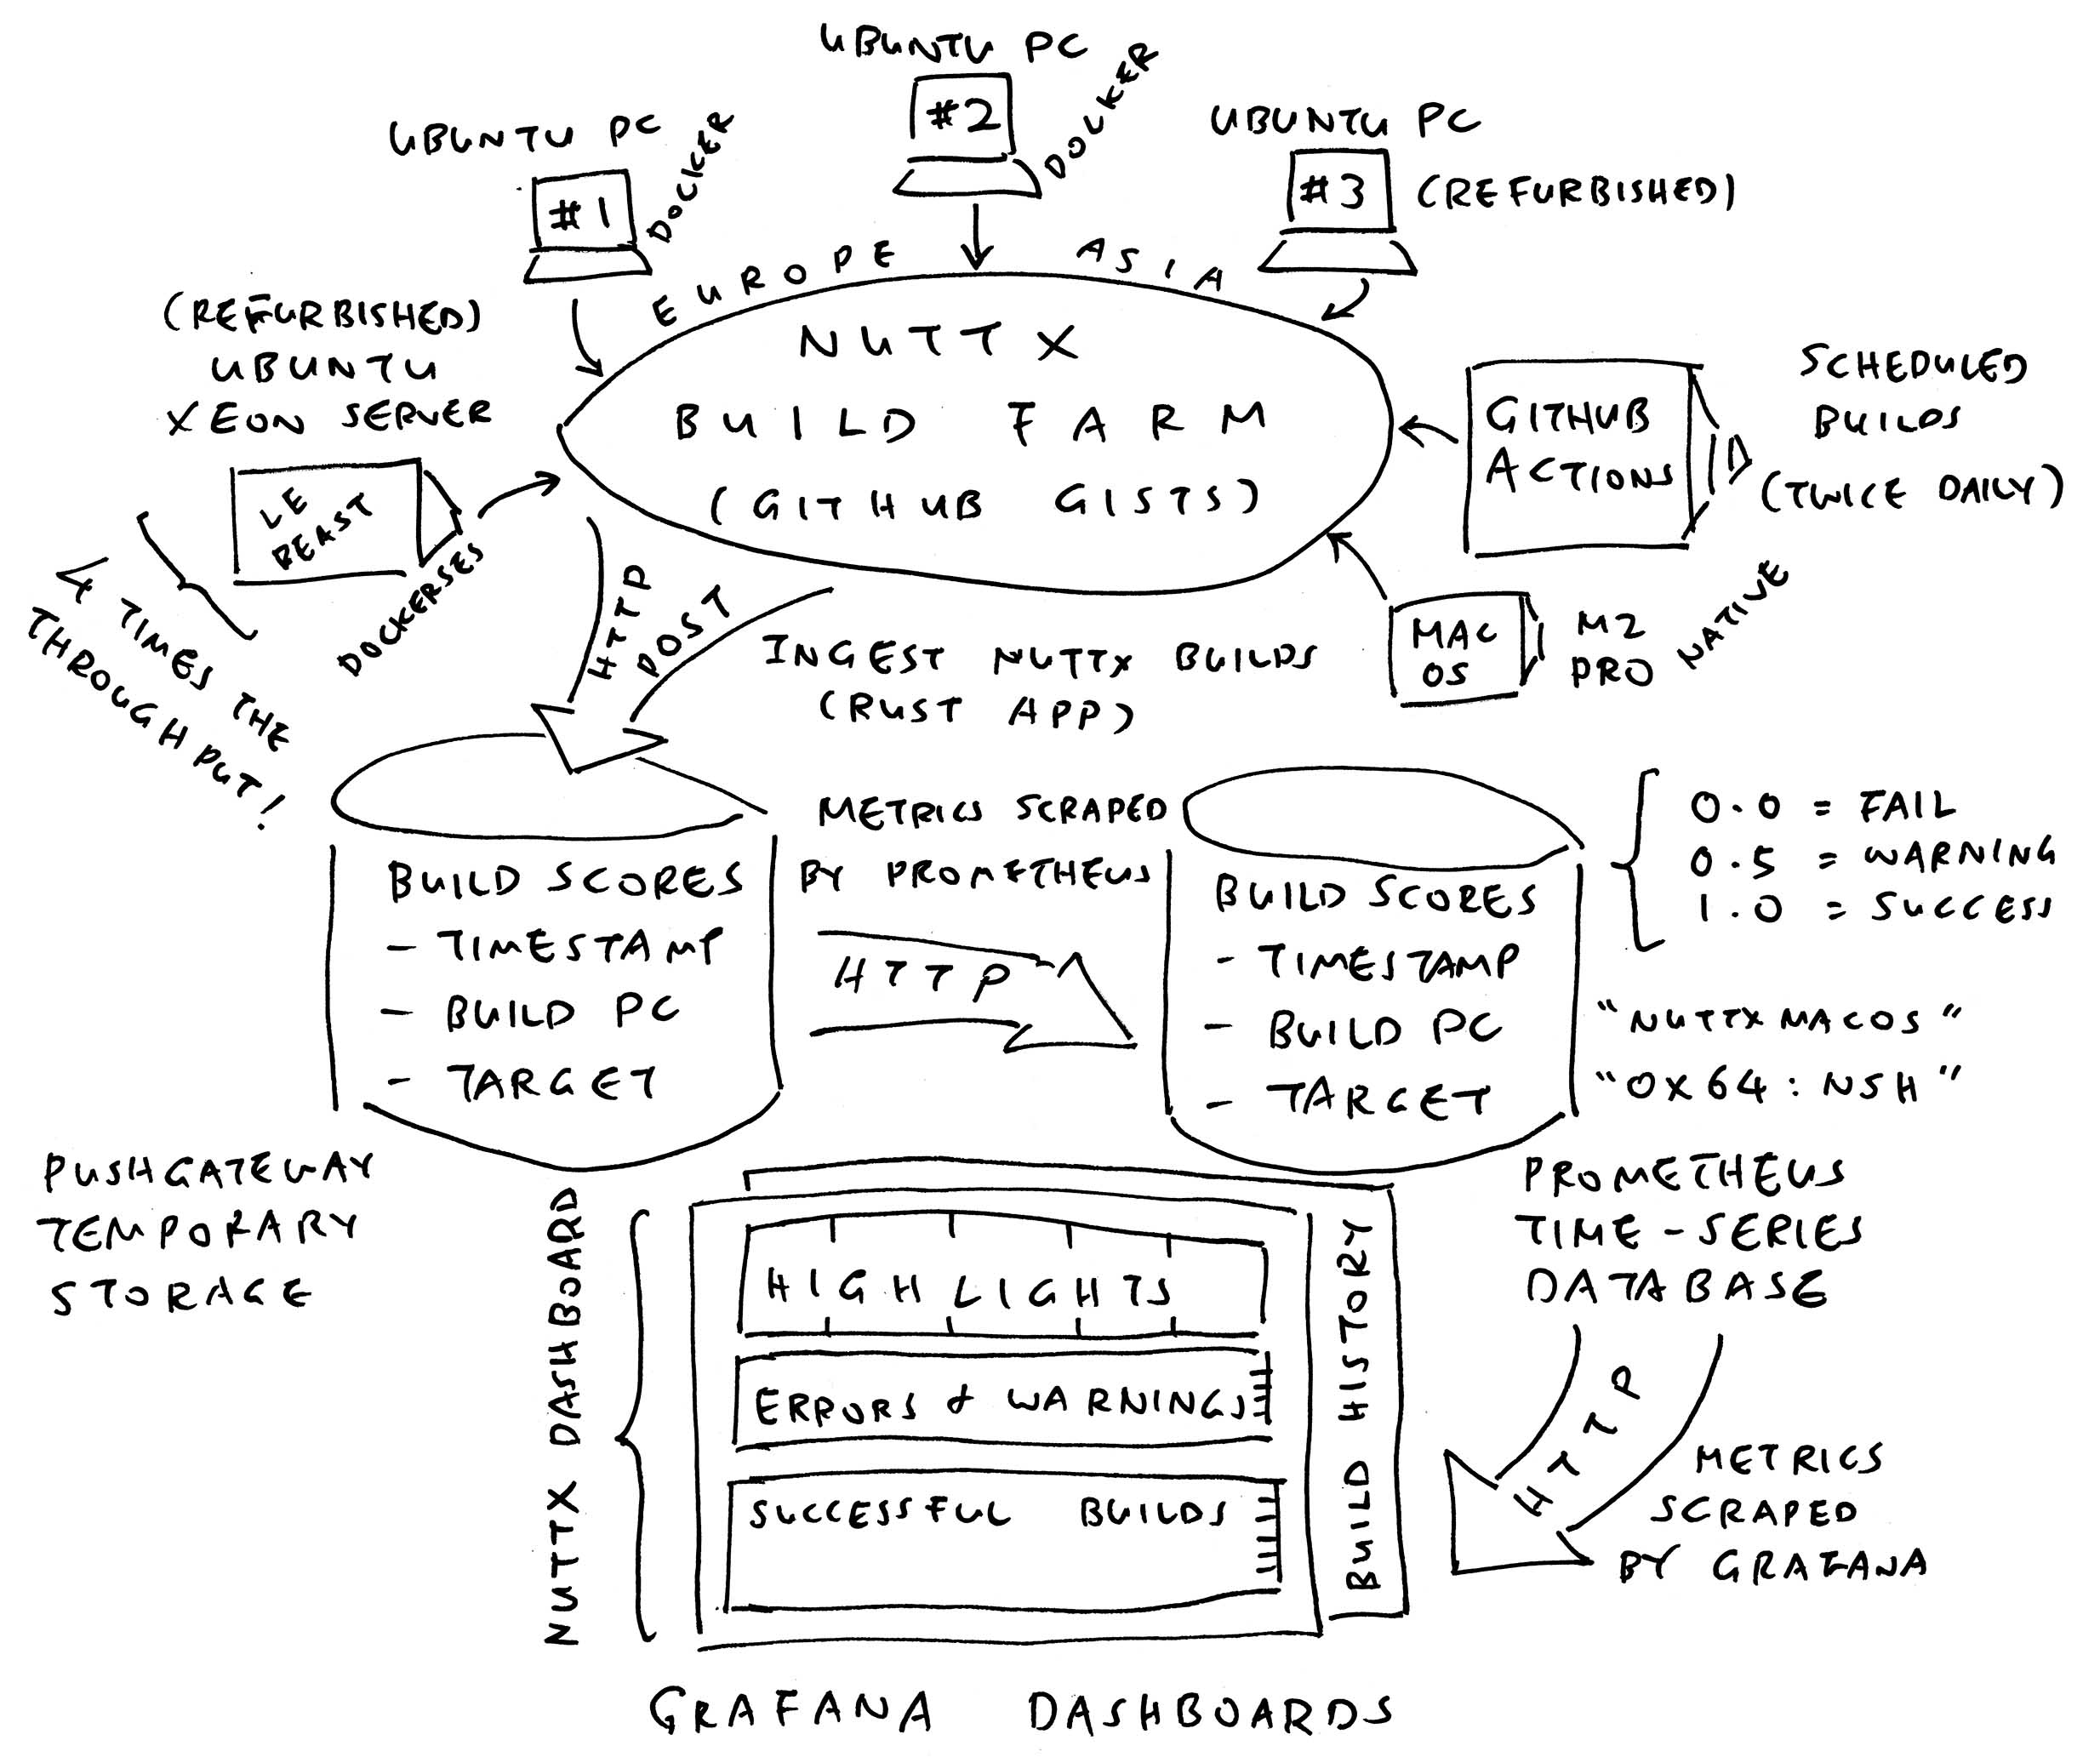 UBUNTU PC
#2
DOCKER
UBUNTU PC
#1
DOCKER
UBUNTU PC
#3
(REFURBISHED)
EUROPE
ASIA
(REFURBISHED)
UBUNTU
XEON SERVER
LE
BEAST
DOCKERSES
4 TIMES THE
THROUGHPUT!
NUTTX
BUILD FARM
(GITHUB GISTS)
GITHUB
ACTIONS
SCHEDULED
BUILDS
(TWICE DAILY)
MAC
OS
M2
PRO
NATIVE
HTTP
POST
INGEST NUTTX BUILDS
(RUST APP)
BUILD SCORES
- TIMESTAMP
- BUILD PC
- TARGET
METRICS SCRAPED
BY PROMETHEUS
HTTP
BUILD SCORES
- TIMESTAMP
- BUILD PC
- TARGET
0.0 = FAIL
0.5 = WARNING
1.0 = SUCCESS
"NUTTXMACOS"
"OX64:NSH"
PUSHGATEWAY
TEMPORARY
STORAGE
PROMETHEUS
TIME-SERIES
DATABASE
NUTTX DASHBOARD
HIGHLIGHTS
ERRORS & WARNINGS
SUCCESSFUL BUILDS
BUILD HISTORY
HTTP
METRICS
SCRAPED
BY GRAFANA
GRAFANA DASHBOARDS